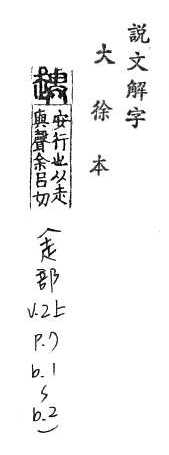 説文解字
大徐本
趣
安行也从走
與聲余呂切
(走部
v.2上
p.7
b.1
~
b.2)